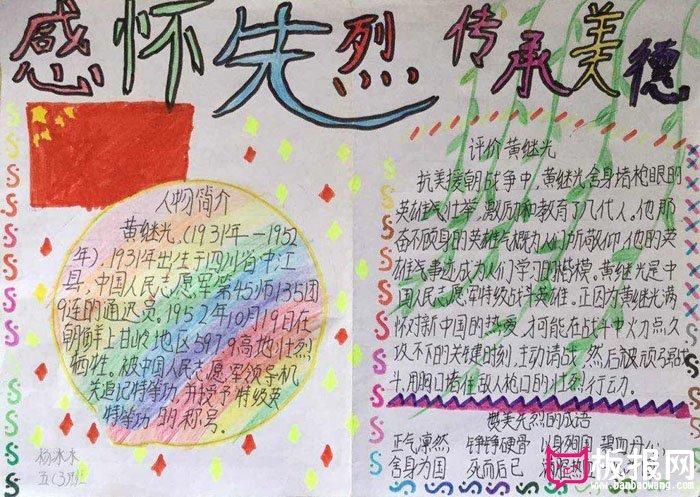 感怀先烈 传承美德
人物简介
黄继光，(1931年——1952
年)，1931年出生于四川省中江
县，中国人民志愿军第45师135团
9连的通讯员。1952年10月19日在
朝鲜上甘岭地区597.9高地壮烈
牺牲。被中国人民志愿军领导机
关追记特等功，并授予特级英
特等功 的称号。
杨冰木
五(3)班
评价黄继光
抗美援朝战争中，黄继光舍身堵枪眼的
英雄气壮举，激励和教育了几代人。他那
奋不顾身的英雄气概为人们所敬仰，他的英
雄事迹成为人们学习的楷模。黄继光是中
国人民志愿军特级战斗英雄。正因为黄继光满
怀对新中国的热爱，才可能在战斗中火力点久
攻不下的关键时刻，主动请战，然后被顽强战
斗，用胸口堵住敌人枪口的壮烈行动。
赞美先烈的成语
正气凛然 铮铮硬骨 以身殉国 碧血丹心
舍身为国 死而后已 满腔热
板报网
www.banbaowang.com